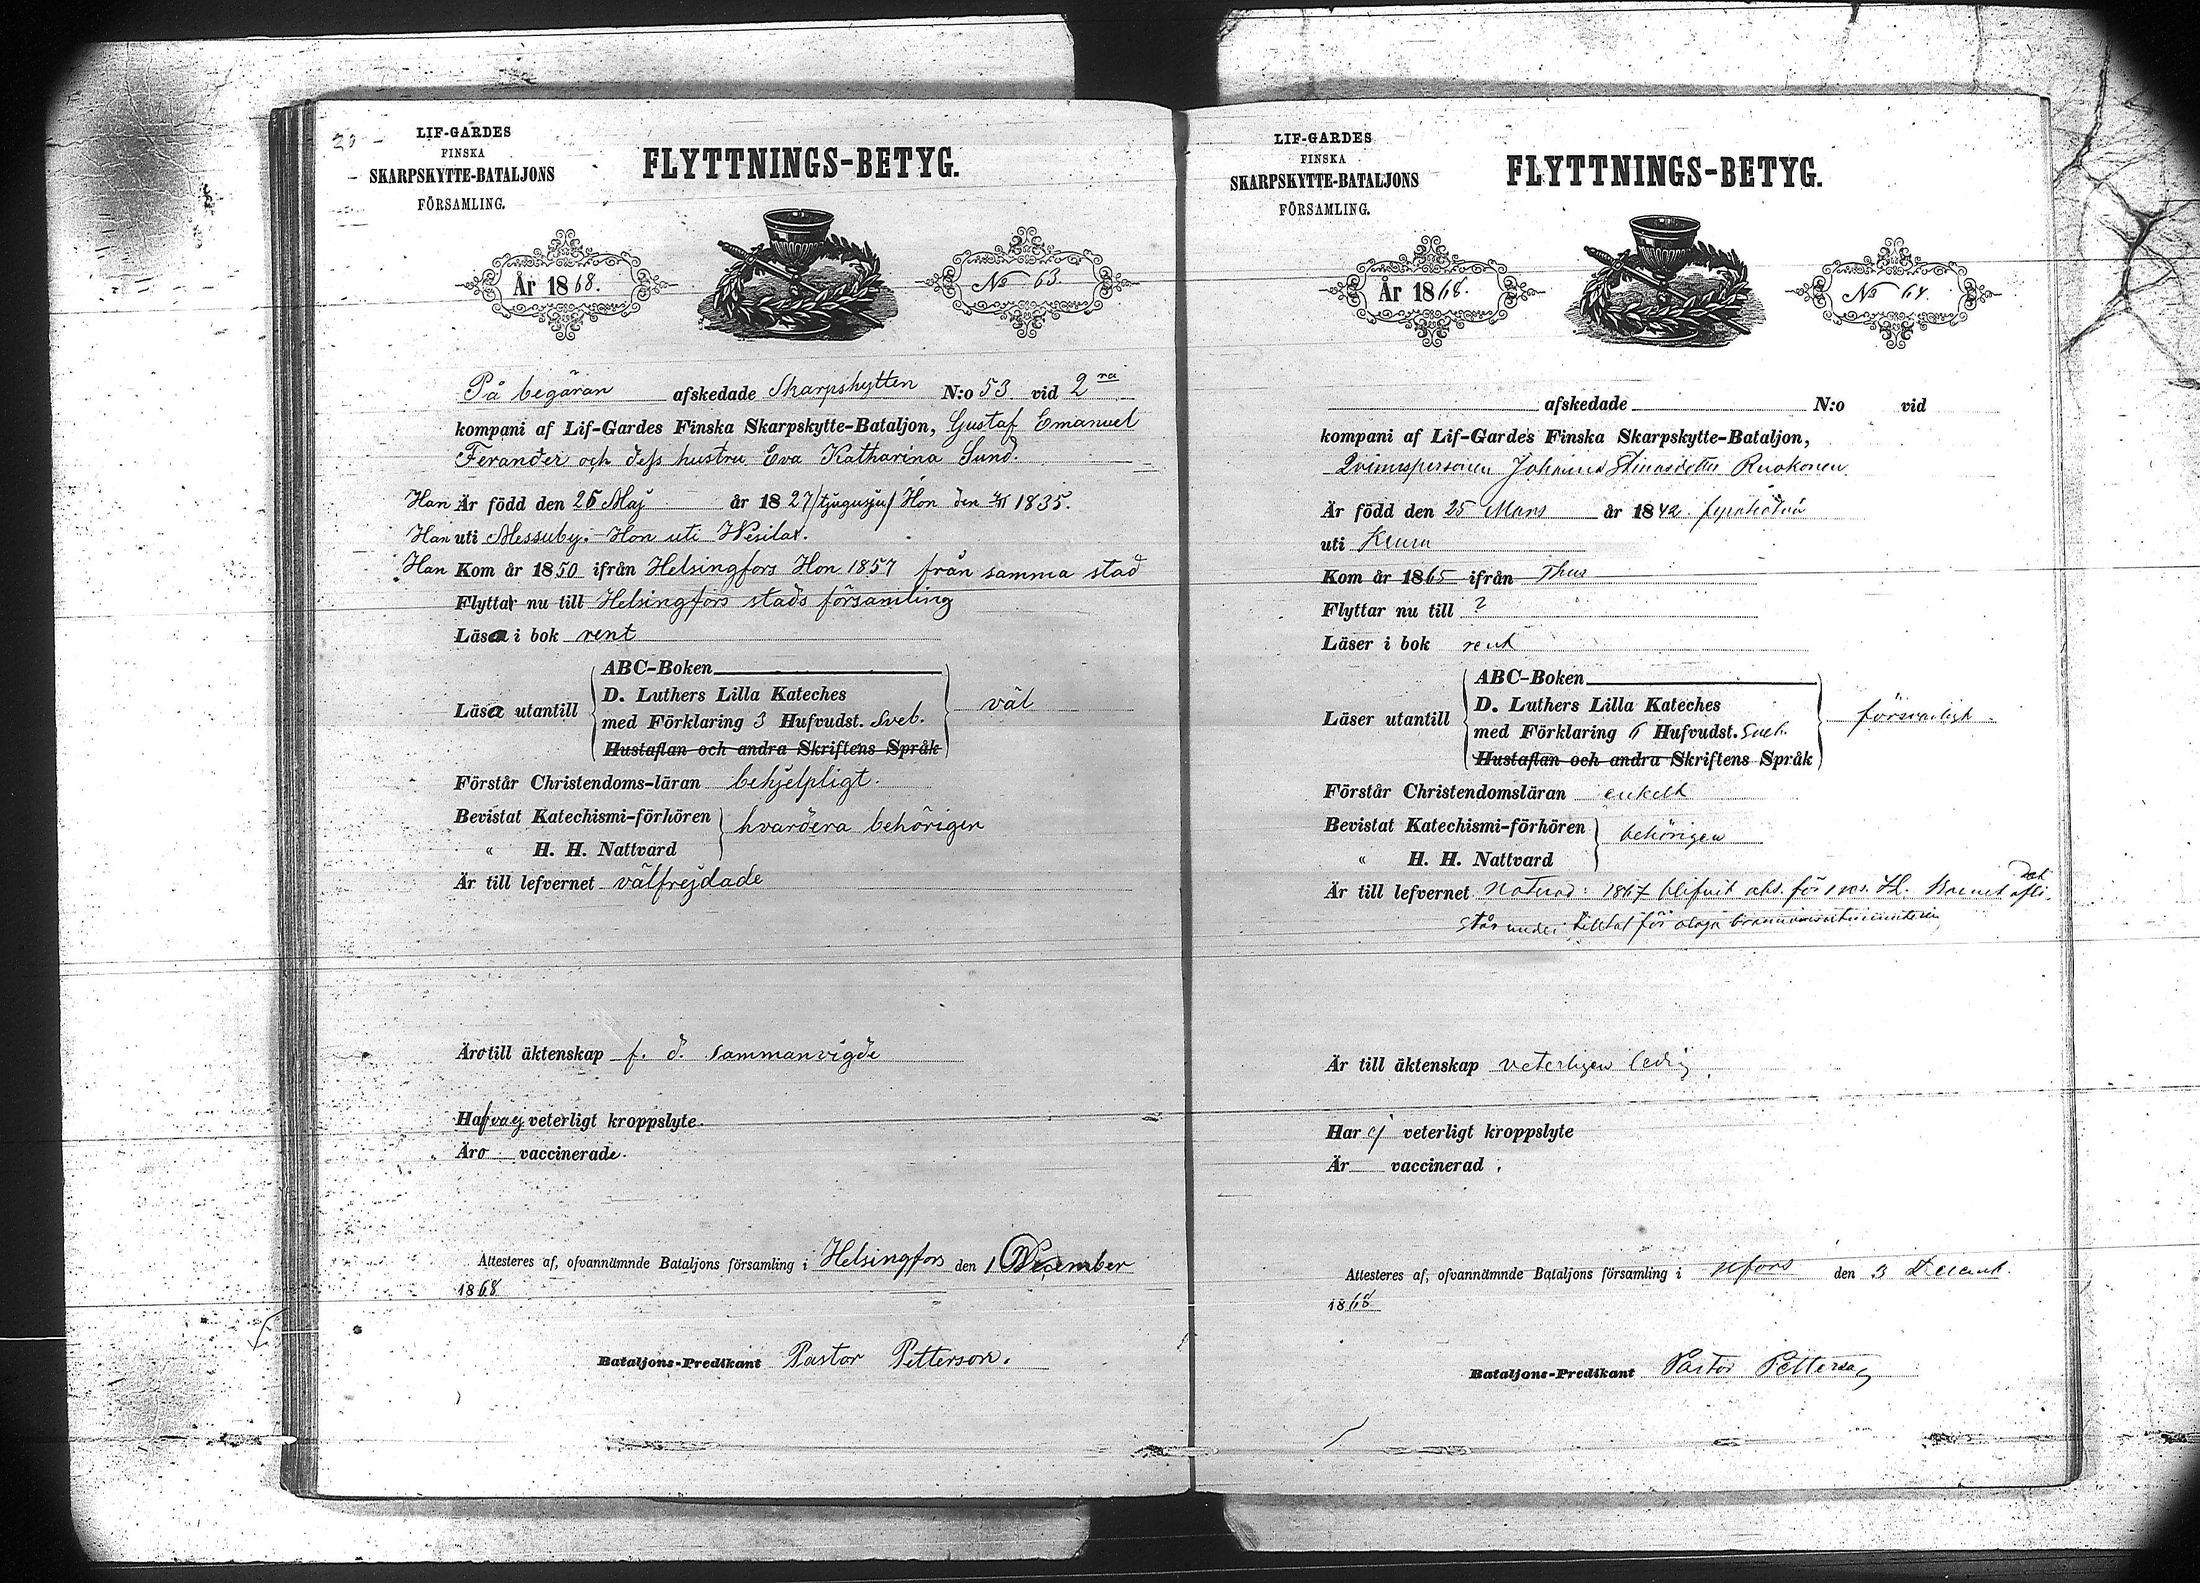 20
LIF-GARDES
FINSKA
SKARPSKYTTE-BATALJONS
FÖRSAMLING.
FLYTTNINGS-BETYG.
År 1868.
No 63.
På begäran afskedade Skarpskytten N:o 53 vid 2ra
kompani af Lif-Gardes Finska Skarpskytte-Bataljon, Gustaf Emanuel
Ferander och dess hustru Eva Katharina Sund.
Han Är född den 25 Maj år 1827 /tjugusju/ Hon den 1835.
Han uti Messuby. Hon uti Wesilax.
Han Kom år 1850 ifrån Helsingfors Hon 1857 från samma stad
Flytta nu till Helsingfors stads församling
Läsa i bok rent
ABC-Boken
Läsa utantill
D. Luthers Lilla Kateches
med Förklaring 3 Hufvudst. Sveb.
väl
Hustaflan och andra Skriftens Språk
Förstår Christendoms-läran behjelpligt.
Bevistat Katechismi-förhören
hvardera behörigen
" H. H. Nattvard
Är till lefvernet välfrejdade
Äro till äktenskap f. d. Sammanvigde
Hafva ej veterligt kroppslyte.
Äro vaccinerade.
Attesteres af, ofvannämnde Bataljons församling i Helsingfors den 1 December
1868
Bataljons-Predikant Pastor Petterson.
LIF-GARDES
FINSKA
SKARPSKYTTE-BATALJONS
FÖRSAMLING.
FLYTTNINGS-BETYG.
År 1868.
No 64.
afskedade N:o vid
kompani af Lif-Gardes Finska Skarpskytte-Bataljon,
Qvinnspersonen Johanna Ruokonen
Är född den 25 Mars år 1842. fyratiotvå
uti Keuru
Kom år 1865 ifrån Thus
Flyttar nu till ?
Läser i bok rent
ABC-Boken
Läser utantill
D. Luthers Lilla Kateches
med Förklaring 6 Hufvudst. Sveb.
försvarligt
Hustaflan och andra Skriftens Språk
Förstår Christendomsläran enkelt
Bevistat Katechismi-förhören
behörigen
" H. H. Nattvard
Är till lefvernet 1867 blifvit abs. för
står under tilltal för
Är till äktenskap veterligen ledig.
Har ej veterligt kroppslyte
Är vaccinerad.
Attesteres af, ofvannämnde Bataljons församling i Hfors den 3 Decemb.
1868
Bataljons-Predikant Pastor Petterson